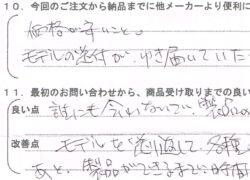 10．今回のご注文から納品までに他メーカーより便利に
価格が安いこと。
モデルの送付が、ゆき届いていた
11．最初のお問い合わせから、商品受け取りまでの良い
良い点 誰にも 製品
改善点 モデルを送り返して、各種
あと、製品ができるまでの時